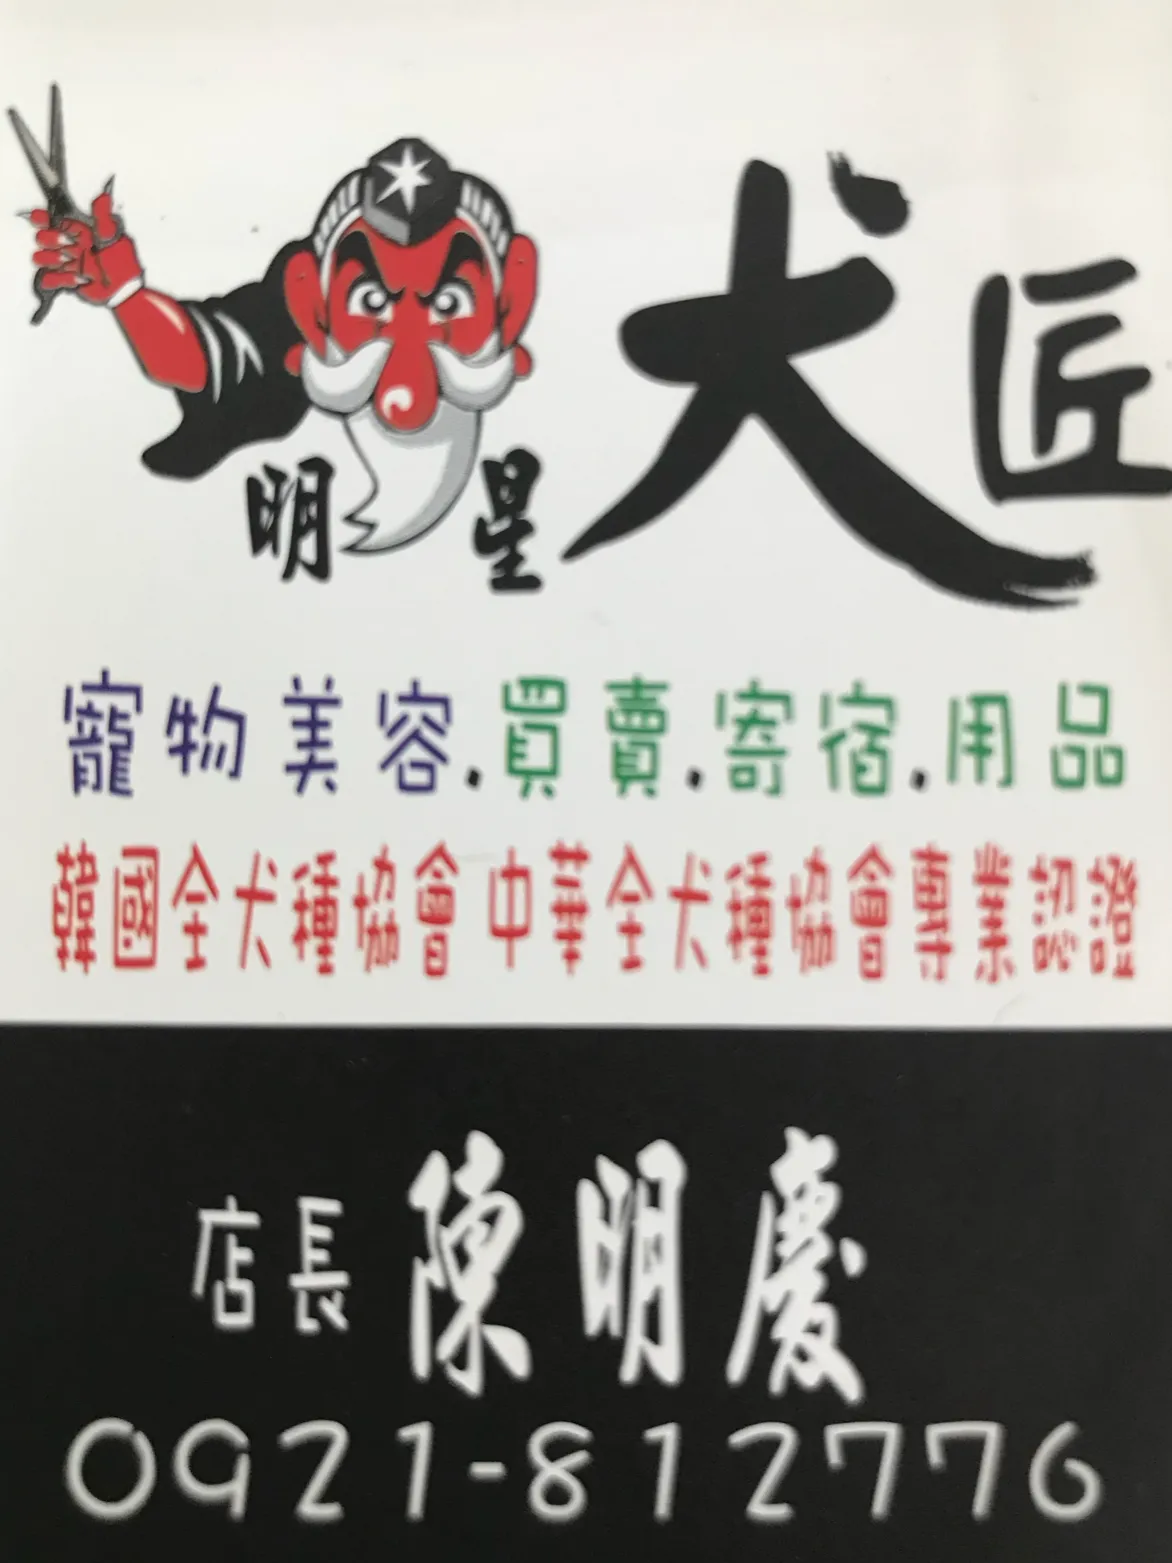 明星犬匠
寵物美容.買賣.寄宿.用品
韓國全犬種協會 中華全犬種協會專業認證
店長 陳明慶
0921-812776